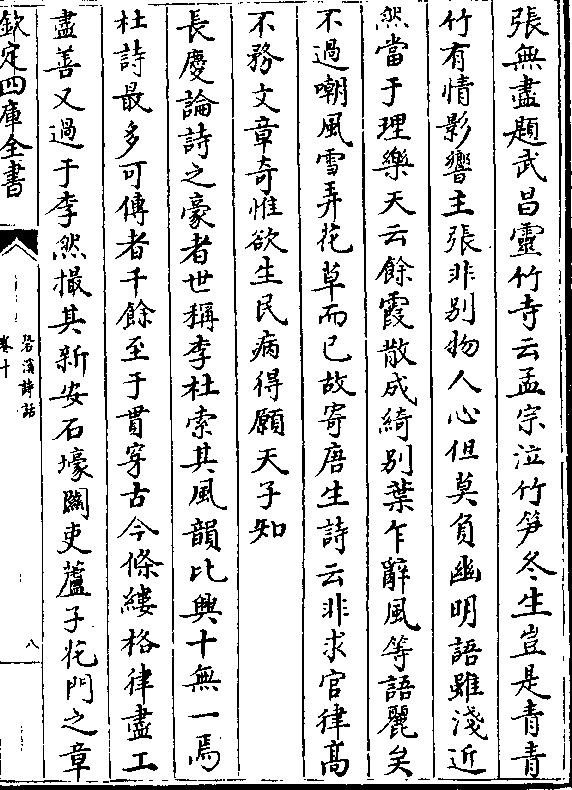 張無盡題武昌靈竹寺云孟宗泣竹笋冬生豈是青青
竹有情影響主張非别物人心但莫負幽明語雖淺近
然當于理樂天云餘霞散成綺别葉乍辭風等語麗矣
不過嘲風雪弄花草而已故寄唐生詩云非求宫律高
不務文章奇惟欲生民病得願天子知
長慶論詩之豪者世稱李杜索其風韻比興十無一焉
杜詩最多可傳者千餘至于貫穿古今條縷格律盡工
盡善又過于李然撮其新安石壕關吏蘆子花門之章
欽定四庫全書
䂬溪詩話
卷十
八